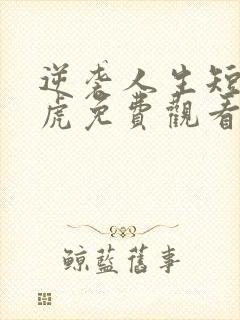 逆袭人生短
虎免費觀看
鲸藍舊事